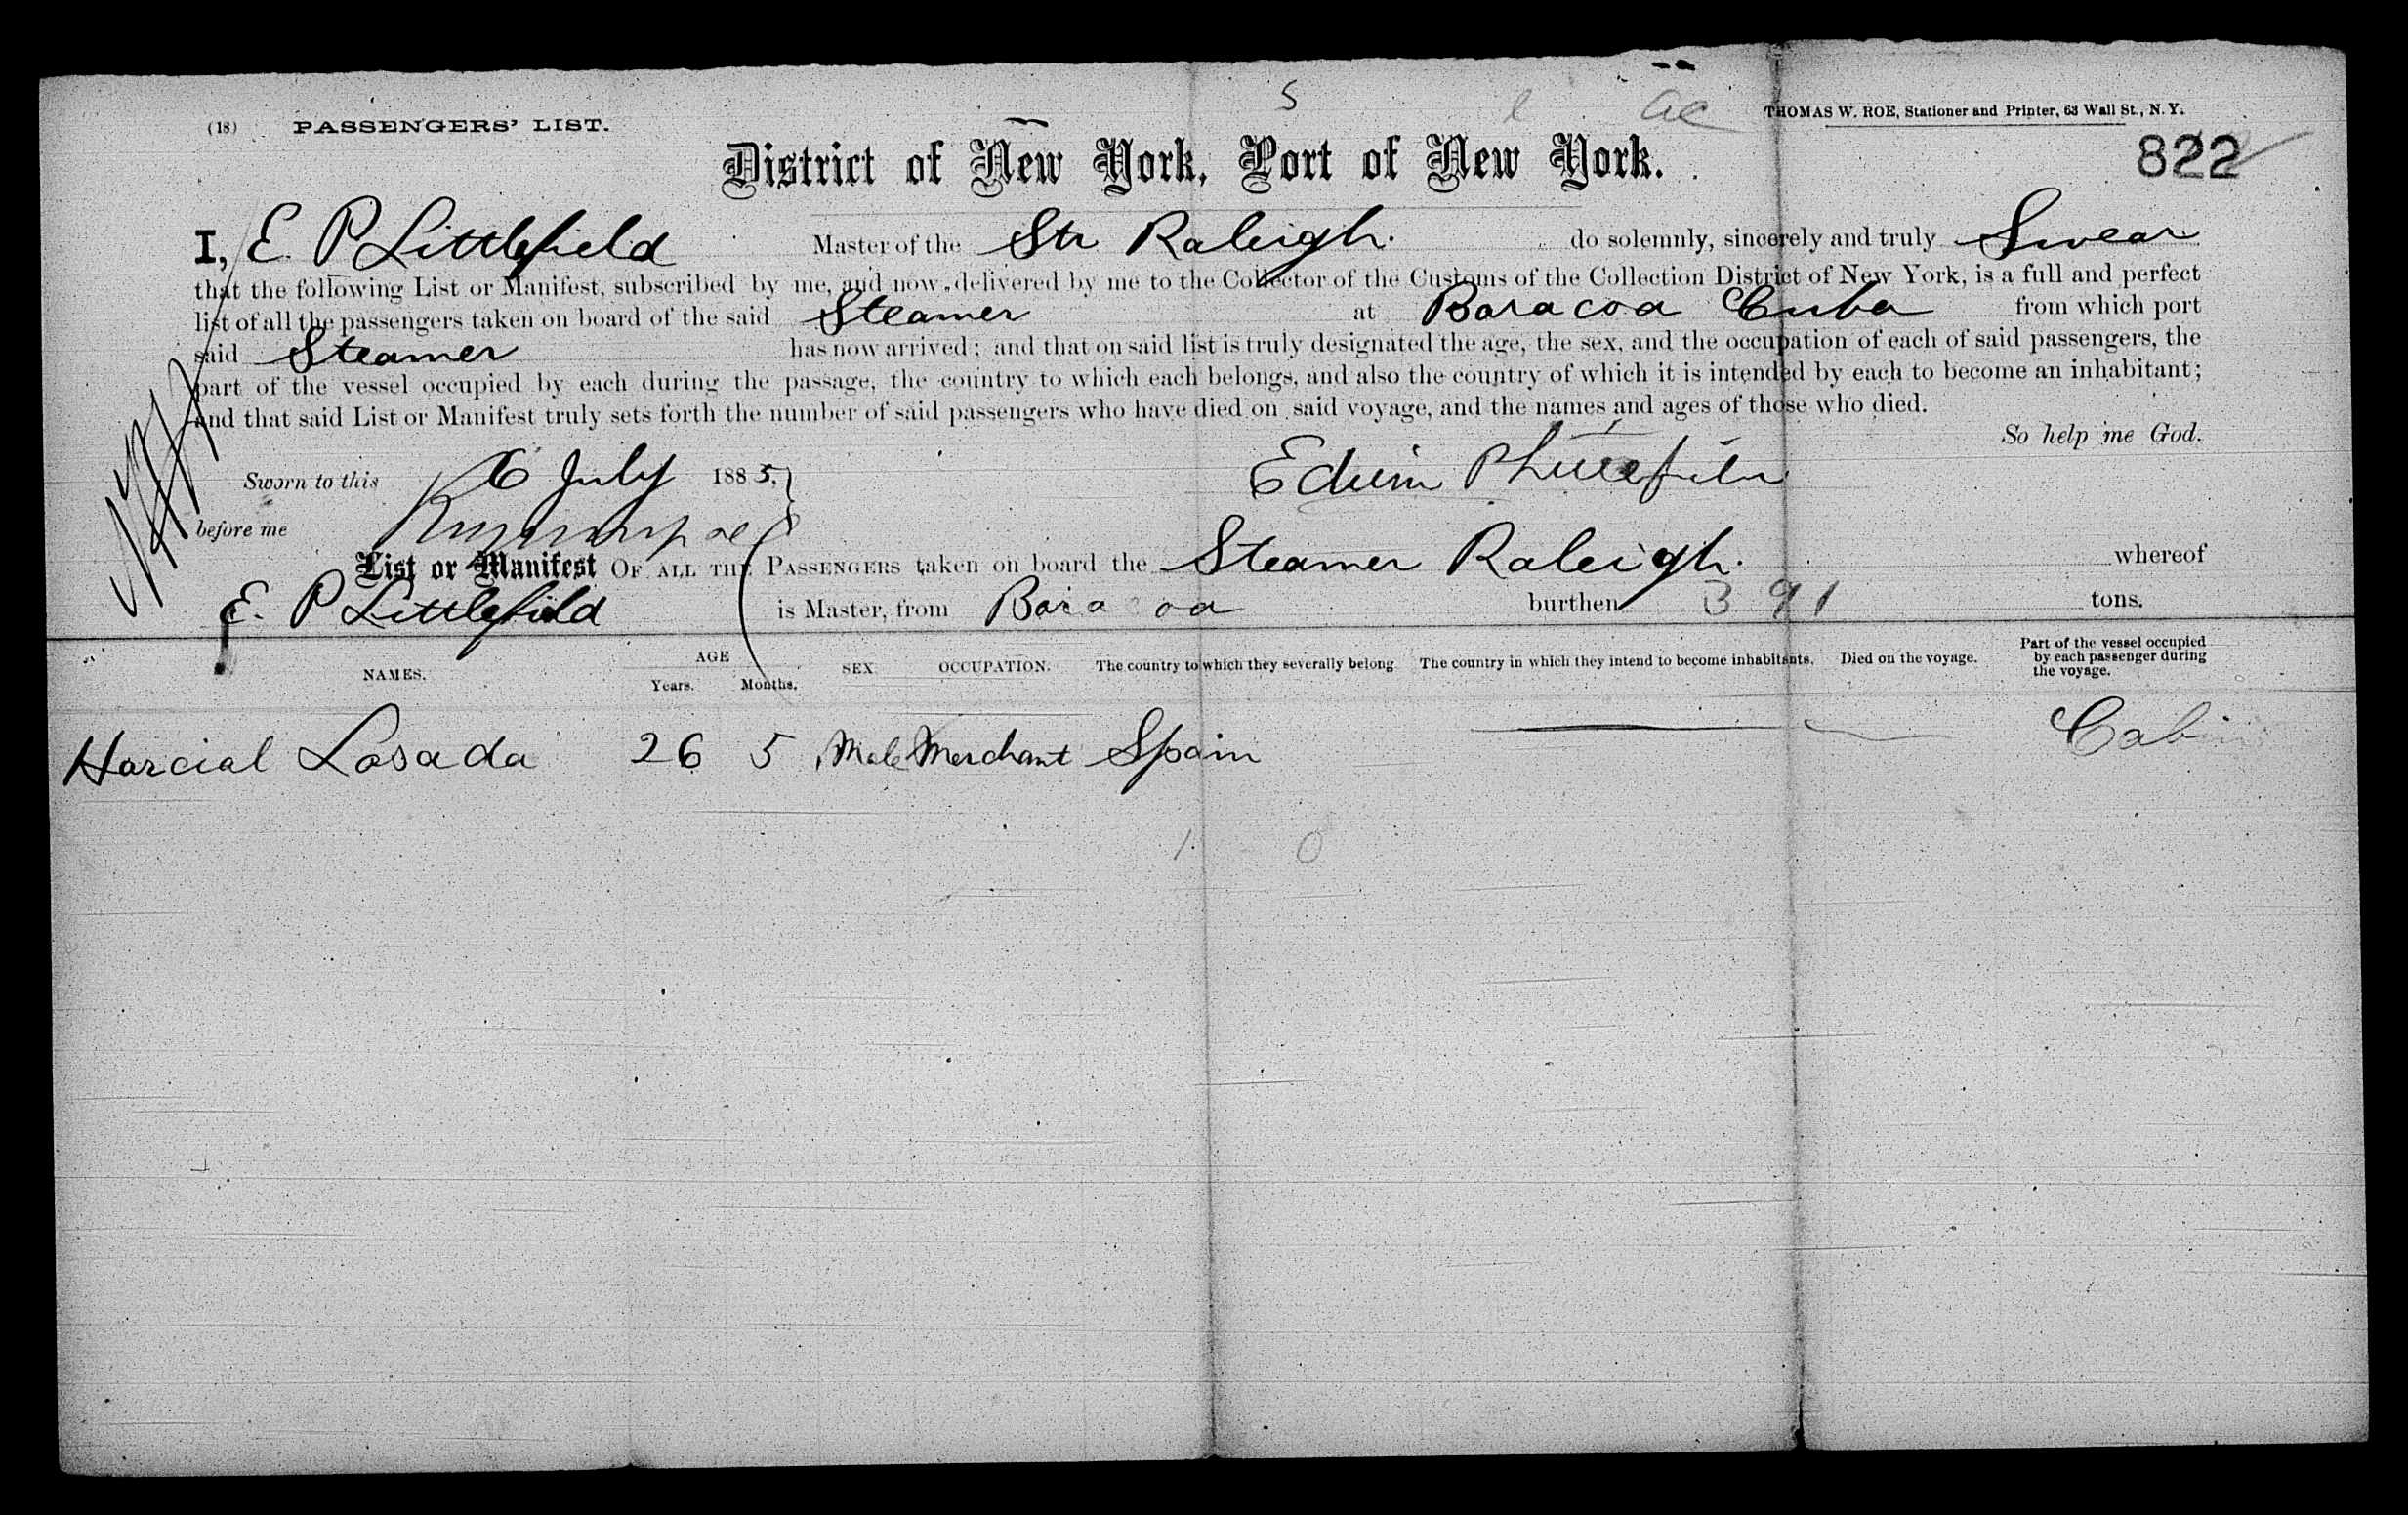 S
ac
(18) PASSENGERS' LIST.
THOMAS W. ROE, Stationer and Printer, 63 Wall St., N. Y.
District of New York, Port of New York.
822
I, E. P Littlefield Master of the Str Raleigh. do solemnly, sincerely and truly Swear
that the following List or Manifest, subscribed by me, and now delivered by me to the Collector of the Customs of the Collection District of New York, is a full and perfect
list of all the passengers taken on board of the said Steamer at Baracoa Cuba from which port
said Steamer has now arrived; and that on said list is truly designated the age, the sex, and the occupation of each of said passengers, the
part of the vessel occupied by each during the passage, the country to which each belongs, and also the country of which it is intended by each to become an inhabitant;
and that said List or Manifest truly sets forth the number of said passengers who have died on said voyage, and the names and ages of those who died.
So help me God.
Sworn to this 6 July 1885.
Edwin P Littlefield
before me
List or Manifest OF ALL THE PASSENGERS taken on board the Steamer Raleigh. whereof
E. P Littlefield is Master, from Baracoa burthen 391 tons.
NAMES. AGE Years. Months. SEX OCCUPATION. The country to which they severally belong. The country in which they intend to become inhabitants. Died on the voyage. Part of the vessel occupied by each passenger during the voyage.
Harcial Losada 26 5 Male Merchant Spain Cabin
1 0